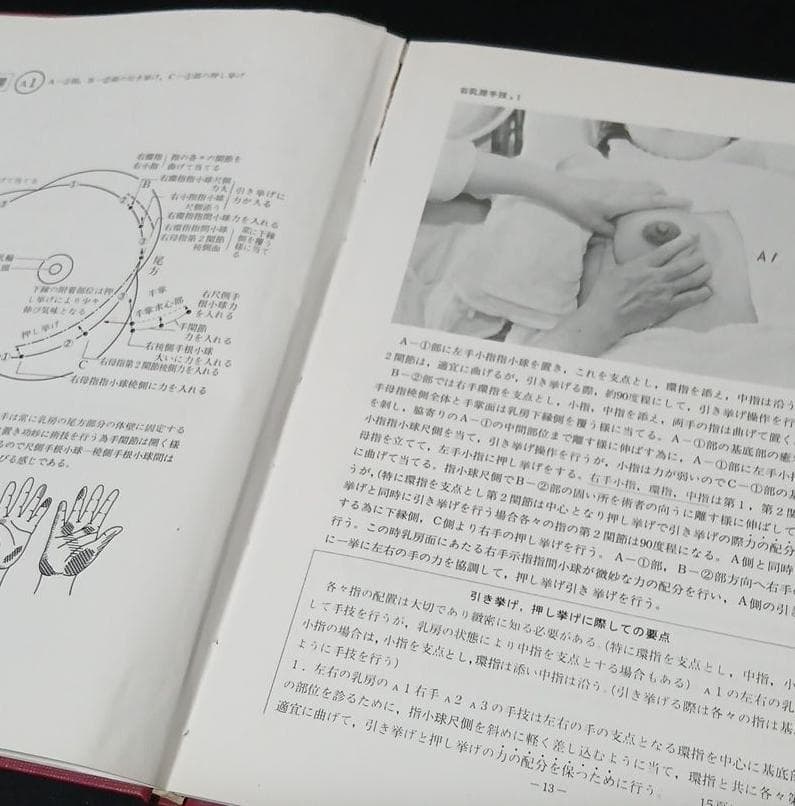 A1
A－①側，B－②部の引き挙げ，C－①部の押し挙げ
右環指
右小指
指の各々の関節を
曲げて当てる
げて当てる
B
右環指指小球尺側
力入
引き挙げに
力が入る
右小指指小球
尺側添う
右環指指間小球力を入れる
右環指指間小球
右母指第2関節
橈側面
常に下縁
側を覆う
様に当て
る
尾方
下縁の附着部位は押
し挙げにより少々
伸び気味となる
手掌
手掌求心部
右尺側手
根小球力
を入れる
押し挙げ
手関節
力を入れる
①
②
③
C
右橈側手根小球
大いに力を入れる
右母指第2関節橈側力を入れる
右母指指小球橈側に力を入れる
手は常に乳房の尾方部分の体壁に固定する
置き功妙に術技を行う為手関節は開く様
るので尺側手根小球－橈側手根小球間は
びる感じである。
右乳房手技A1
A1
A－①部に左手小指指小球を置き，これを支点とし，環指を添え，中指は沿う
2関節は，適宜に曲げるが，引き挙げる際，約90度程にして，引き挙げ操作を行
B－②部では右手環指を支点とし，小指，中指を添え，両手の指は曲げて置く。
手母指橈側全体と手掌面は乳房下縁側を覆う様に当てる。A－①部の基底部の癒
を剝し，脇寄りのA－①の中間部位まで離す様に伸ばす為に，A－①部に左手小指
小指指小球尺側を当て，引き挙げ操作を行うが，小指は力が弱いのでC－①部の基
母指を立てて，左手小指に押し挙げをする。右手小指，環指，中指は第1，第2関
に曲げて当てる。指小球尺側でB－②部の固い所を術者の向うに離す様に伸ばして
うが，（特に環指を支点とし第2関節は中心となり押し挙げで引き挙げの際力の配分
挙げと同時に引き挙げを行う場合各々の指の第2関節は90度程になる。A側と同時
する為に下縁側，C側より右手の押し挙げを行う。A－①部，B－②部方向へ右手の
行う。この時乳房面にあたる右手示指指間小球が微妙な力の配分を行い，A側の引き
に一挙に左右の手の力を協調して，押し挙げ引き挙げを行う。
引き挙げ，押し挙げに際しての要点
各々指の配置は大切であり緻密に知る必要がある。（特に環指を支点とし，中指，小
して手技を行うが，乳房の状態により中指を支点とする場合もある）A1の左右の乳
小指の場合は，小指を支点とし，環指は添い中指は沿う。（引き挙げる際は各々の指は基
ように手技を行う）
1．左右の乳房のA1右手A2A3の手技は左右の手の支点となる環指を中心に基底部
の部位を診るために，指小球尺側を斜めに軽く差し込むように当て，環指と共に各々第
適宜に曲げて，引き挙げと押し挙げの力の配分を保つために行う。
－13－